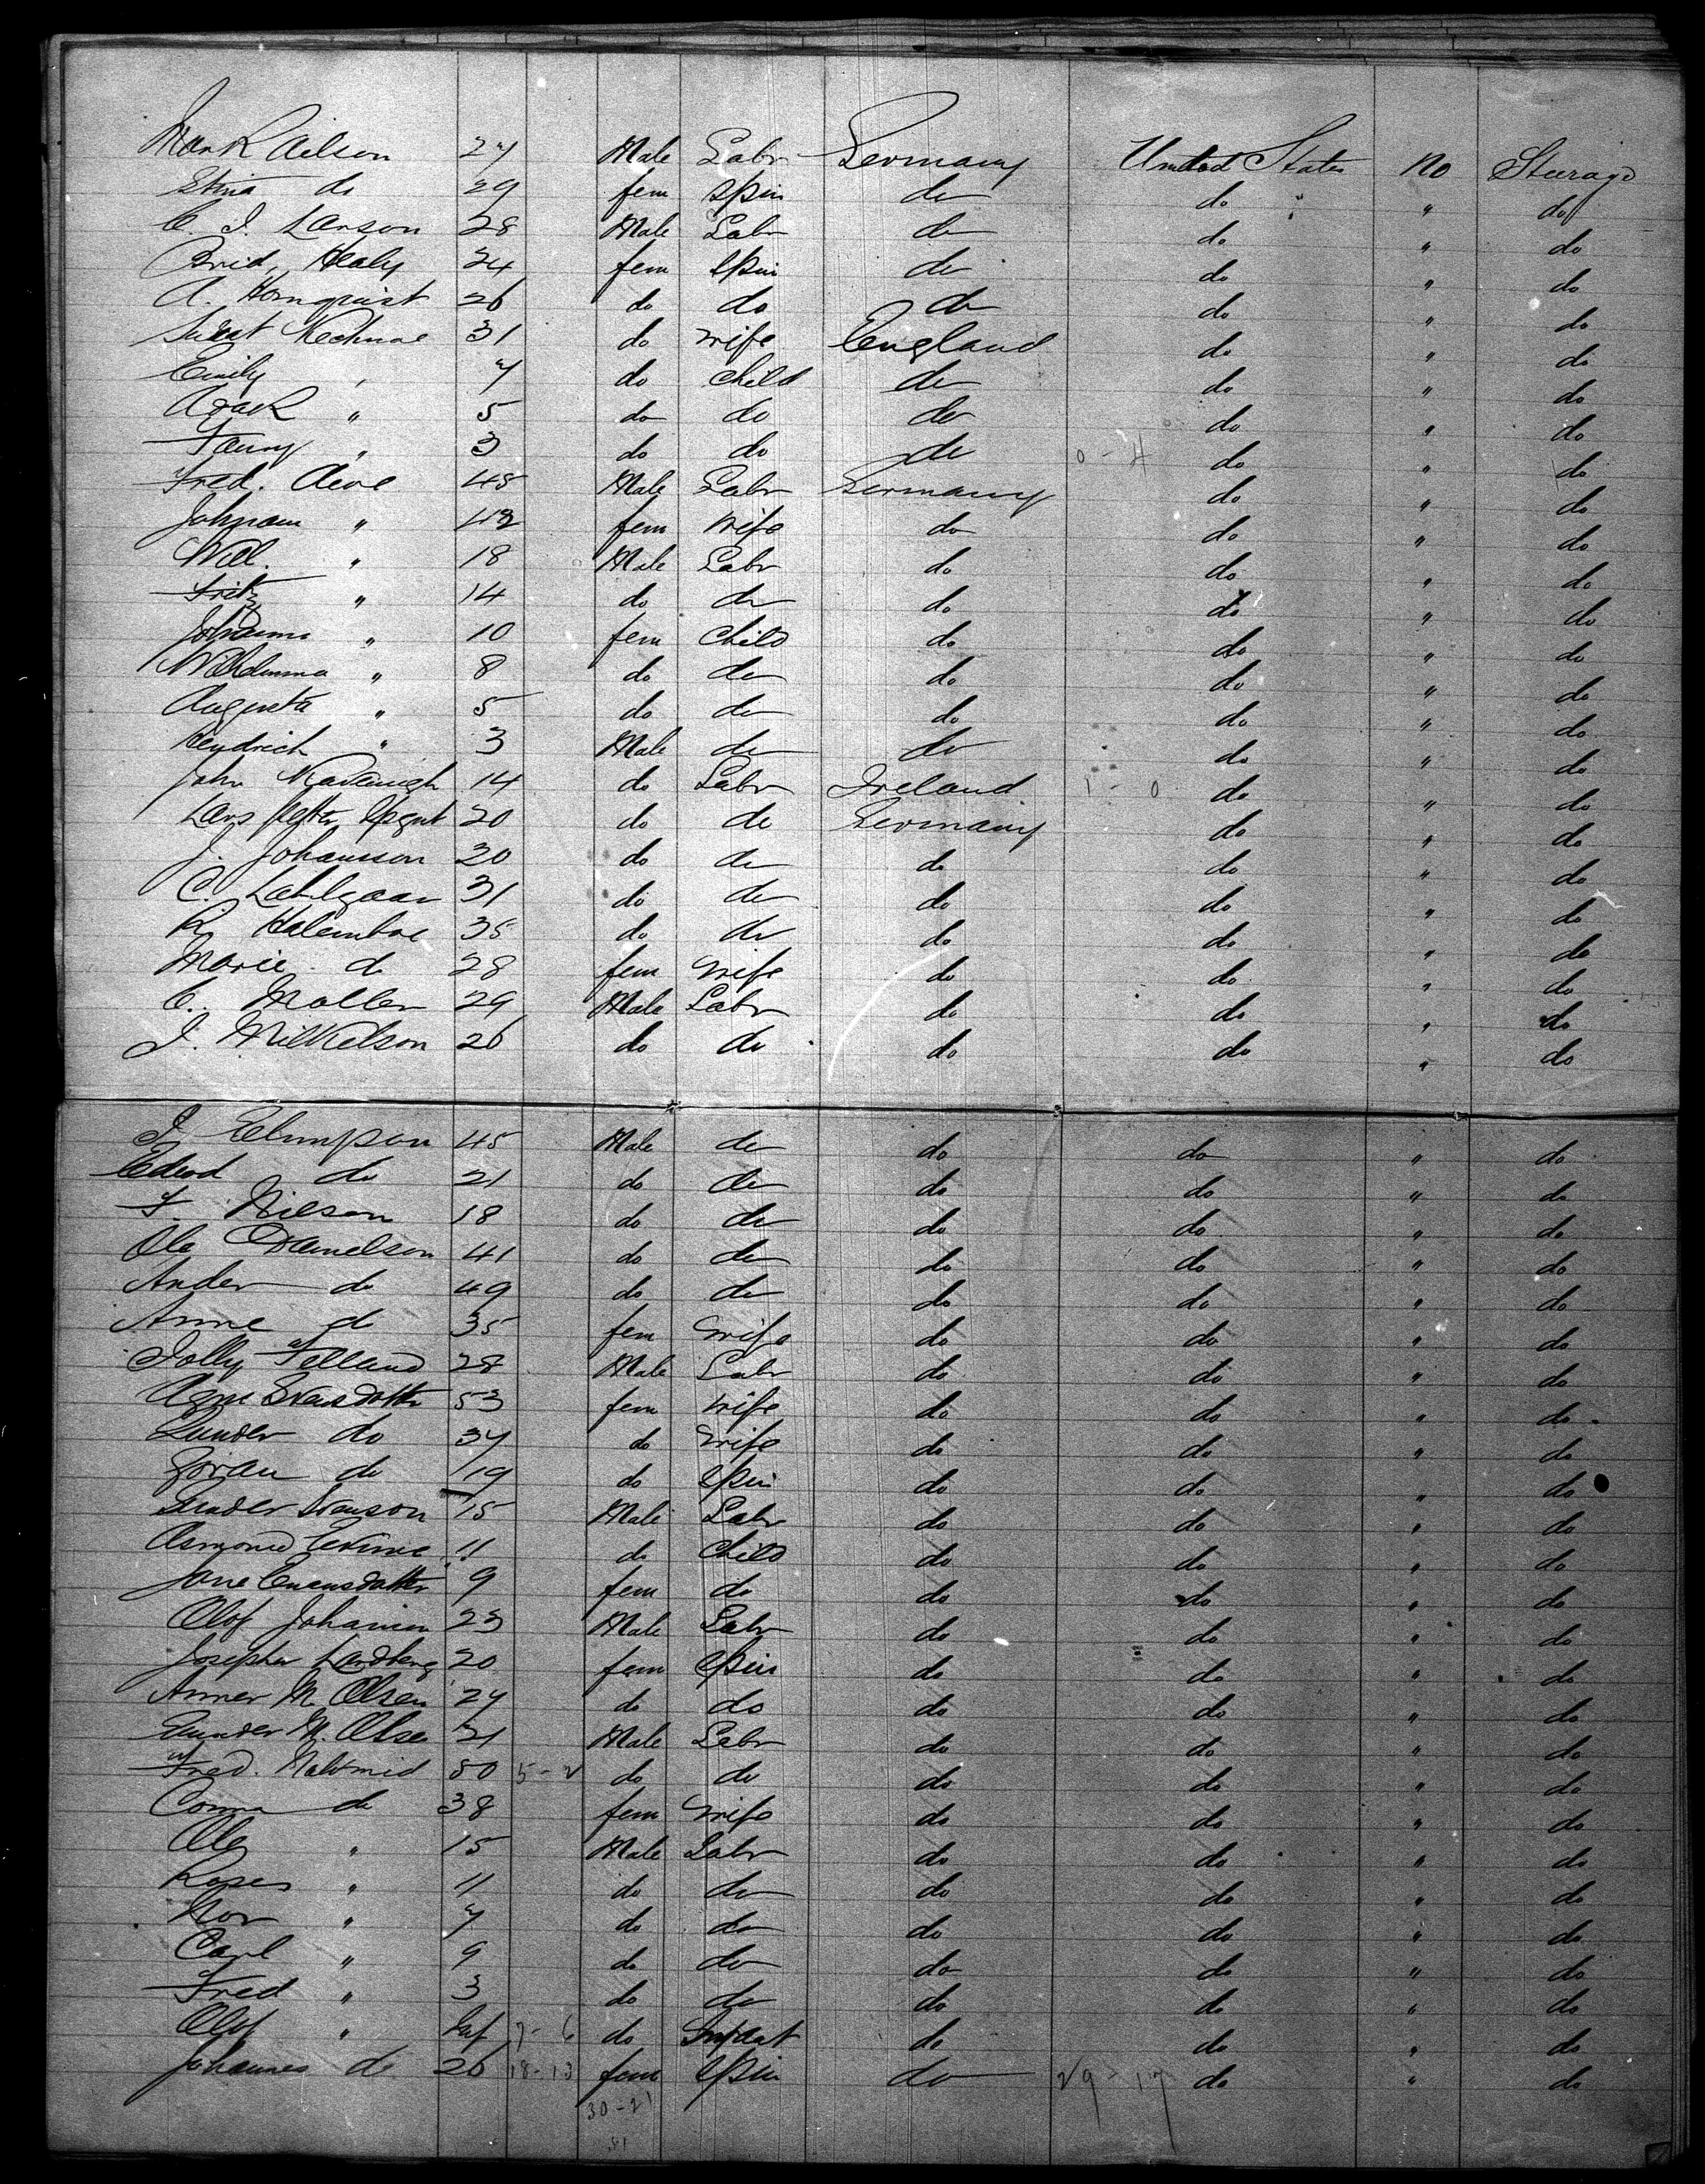 Mark Ailson 27 Male Labr Germany United States no Steerage
Stina do 29 fem Spin do do " do
C. J. Larson 28 Male Labr do do " do
Brid. Healy 24 fem Spin do do " do
A. Hornquist 26 do do do do " do
31 do wife England do " do
Emily " 7 do Child do do " do
5 do do do do " do
Fanny " 3 do do do 0 - 4 do " do
Fred. 45 Male Labr Germany do " do
" 42 fem wife do do " do
Will. " 18 Male Labr do do " do
Fritz " 14 do do do do " do
Johanna " 10 fem Child do do " do
" 8 do do do do " do
Augusta " 5 do do do do " do
Hendrich " 3 Male do do do " do
John Kavanigh 14 do Labr Ireland 1 - 0 do " do
Lars Petter 20 do do Germany do " do
J. Johansson 30 do do do do " do
C. 31 do do do do " do
35 do do do do " do
Marie do 28 fem wife do do " do
C. Moller 29 Male Labr do do " do
J. Milkelson 26 do do do do " do
J. 45 Male do do do " do
do 21 do do do do " do
F. Nilson 18 do do do do " do
Ole Danielson 41 do do do do " do
Ander do 49 do do do do " do
Anne do 35 fem wife do do " do
Jolly Felland 28 Male Labr do do " do
Svensdotter 53 fem wife do do " do
Gunder do 37 do wife do do " do
Goran do 19 do Spin do do " do
Gunder Svenson 15 Male Labr do do " do
Asmond 11 do Child do do " do
Jane 9 fem do do do " do
Olof 23 Male Labr do do " do
Landberg 20 fem Spin do do " do
Anner M. Olsen 27 do do do do " do
Gunder M. Olse 21 Male Labr do do " do
Fred. 50 5 - 2 do do do do " do
do 38 fem wife do do " do
Ole " 15 Male Labr do do " do
" 11 do do do do " do
" 7 do do do do " do
Carl " 9 do do do do " do
Fred " 3 do do do do " do
Olof " Inf 7 - 6 do Infant do do " do
Johannes do 26 18 - 13 fem Spin do 29 - 17 do " do
30 - 21